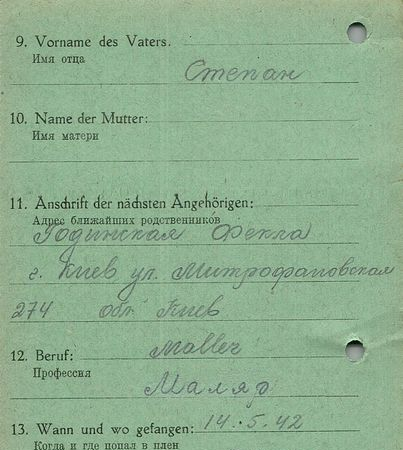 9. Vorname des Vaters.
Имя отца
Степан
10. Name der Mutter:
Имя матери
11. Anschrift der nächsten Angehörigen:
Адрес ближайших родственников
Годинская Фекла
г. Киев ул. Митрофановская
274 обл. Киев
12. Beruf: Maller
Профессия
Маляр
13. Wann und wo gefangen: 14.5.42
Когда и где попал в плен